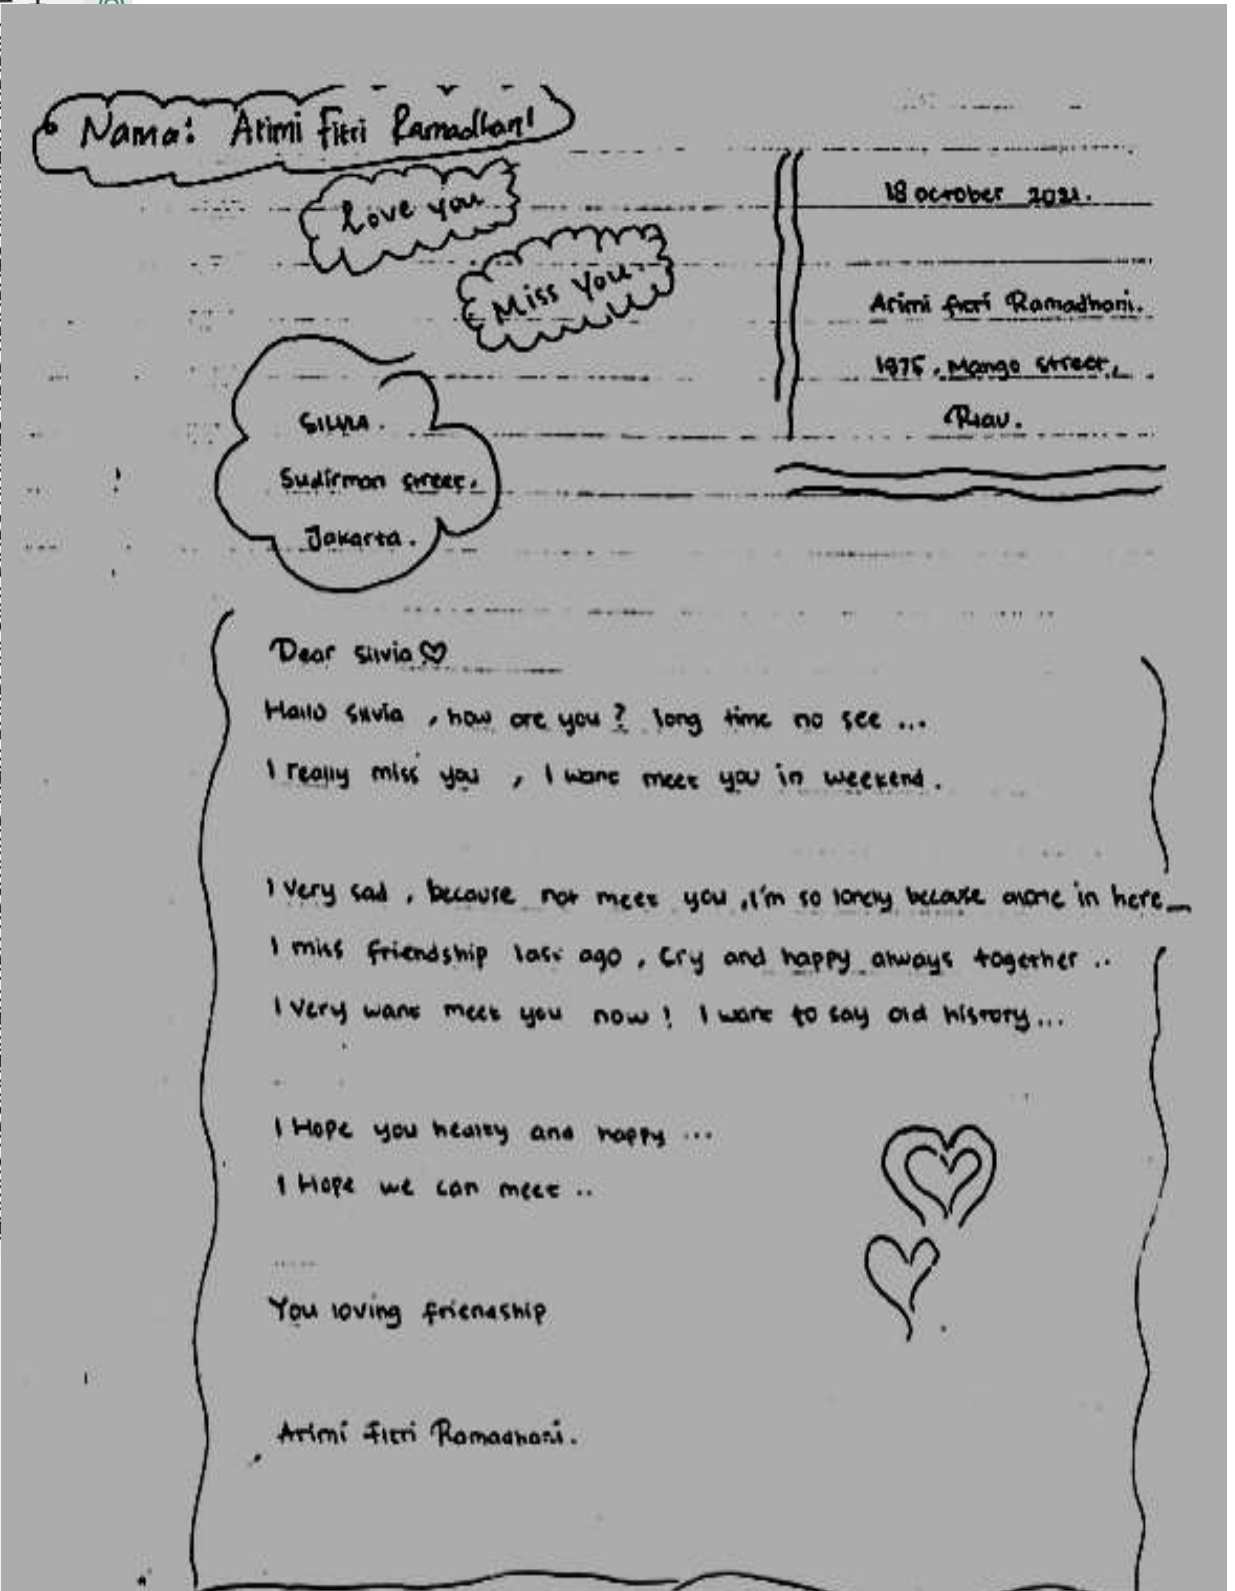 Nama: Arimi Fitri Ramadhani
Love you
Miss You
18 october 2021.
Arimi fitri Ramadhani.
1975, Mango street,
Riau.
SILVIA.
Sudirman street,
Jakarta.
Dear Silvia
Hallo Silvia, how are you? long time no see ...
I really miss you, I want meet you in weekend.
I very sad, because not meet you, I'm so lonely because alone in here
I miss friendship last ago, cry and happy always together ..
I very want meet you now! I want to say old history...
I Hope you healty and happy ...
I Hope we can meet ..
You loving friendship
Arimi Fitri Ramadhani.